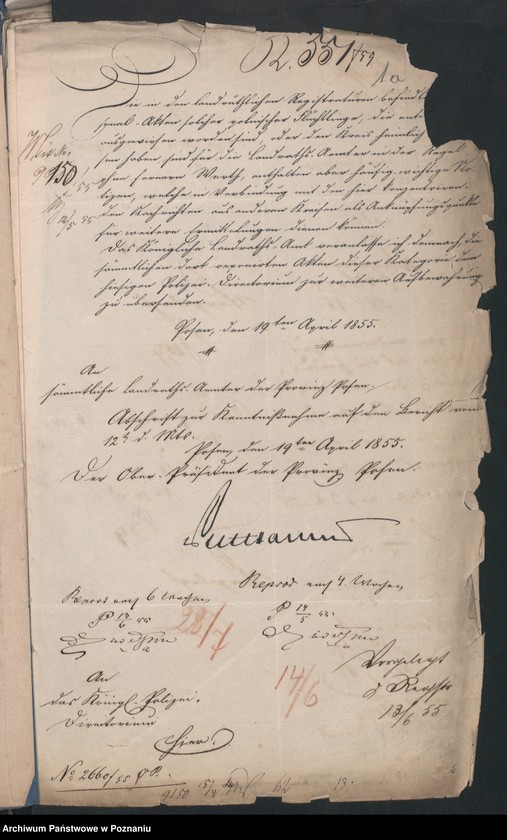 R. 551/59
1a
Die in den landräthlichen Registraturen befindl
Spezial-Akten solcher polnischer Flüchtlinge, die
ausgewiesen worden sind, oder den Kreis heimlich
haben sind für die Landraths-Aemter in der Regel
ohne fernern Werth, enthalten aber häufig wichtige No-
tizen, welche in Verbindung mit den hier konzentriren-
den Nachrichten aus anderen Kreisen als Anknüpfungspunkte
für weitere Ermittelungen dienen können.
Das Königliche Landraths-Amt veranlasse ich demnach, die
sämmtlichen dort reponirten Akten dieser Kategorie dem
hiesigen Polizei-Directorium zur weiteren Aufbewahrung
zu übersenden.
Posen, den 19ten April 1855.
An
sämmtliche Landraths-Aemter der Provinz Posen.
Abschrift zur Kenntnißnahme auf den Bericht vom
12t d. Mts.
Posen, den 19ten April 1855.
Der Ober-Präsident der Provinz Posen.
Puttkammer
Reprod nach 6 Wochen
Reprod nach 4 Wochen
28/7
14/6
Vorgelegt
d Registr
13/6 55
An
das Königl. Polizei-
Directorium
hier.
No 2660/55 OP.
9150
Archiwum Państwowe w Poznaniu